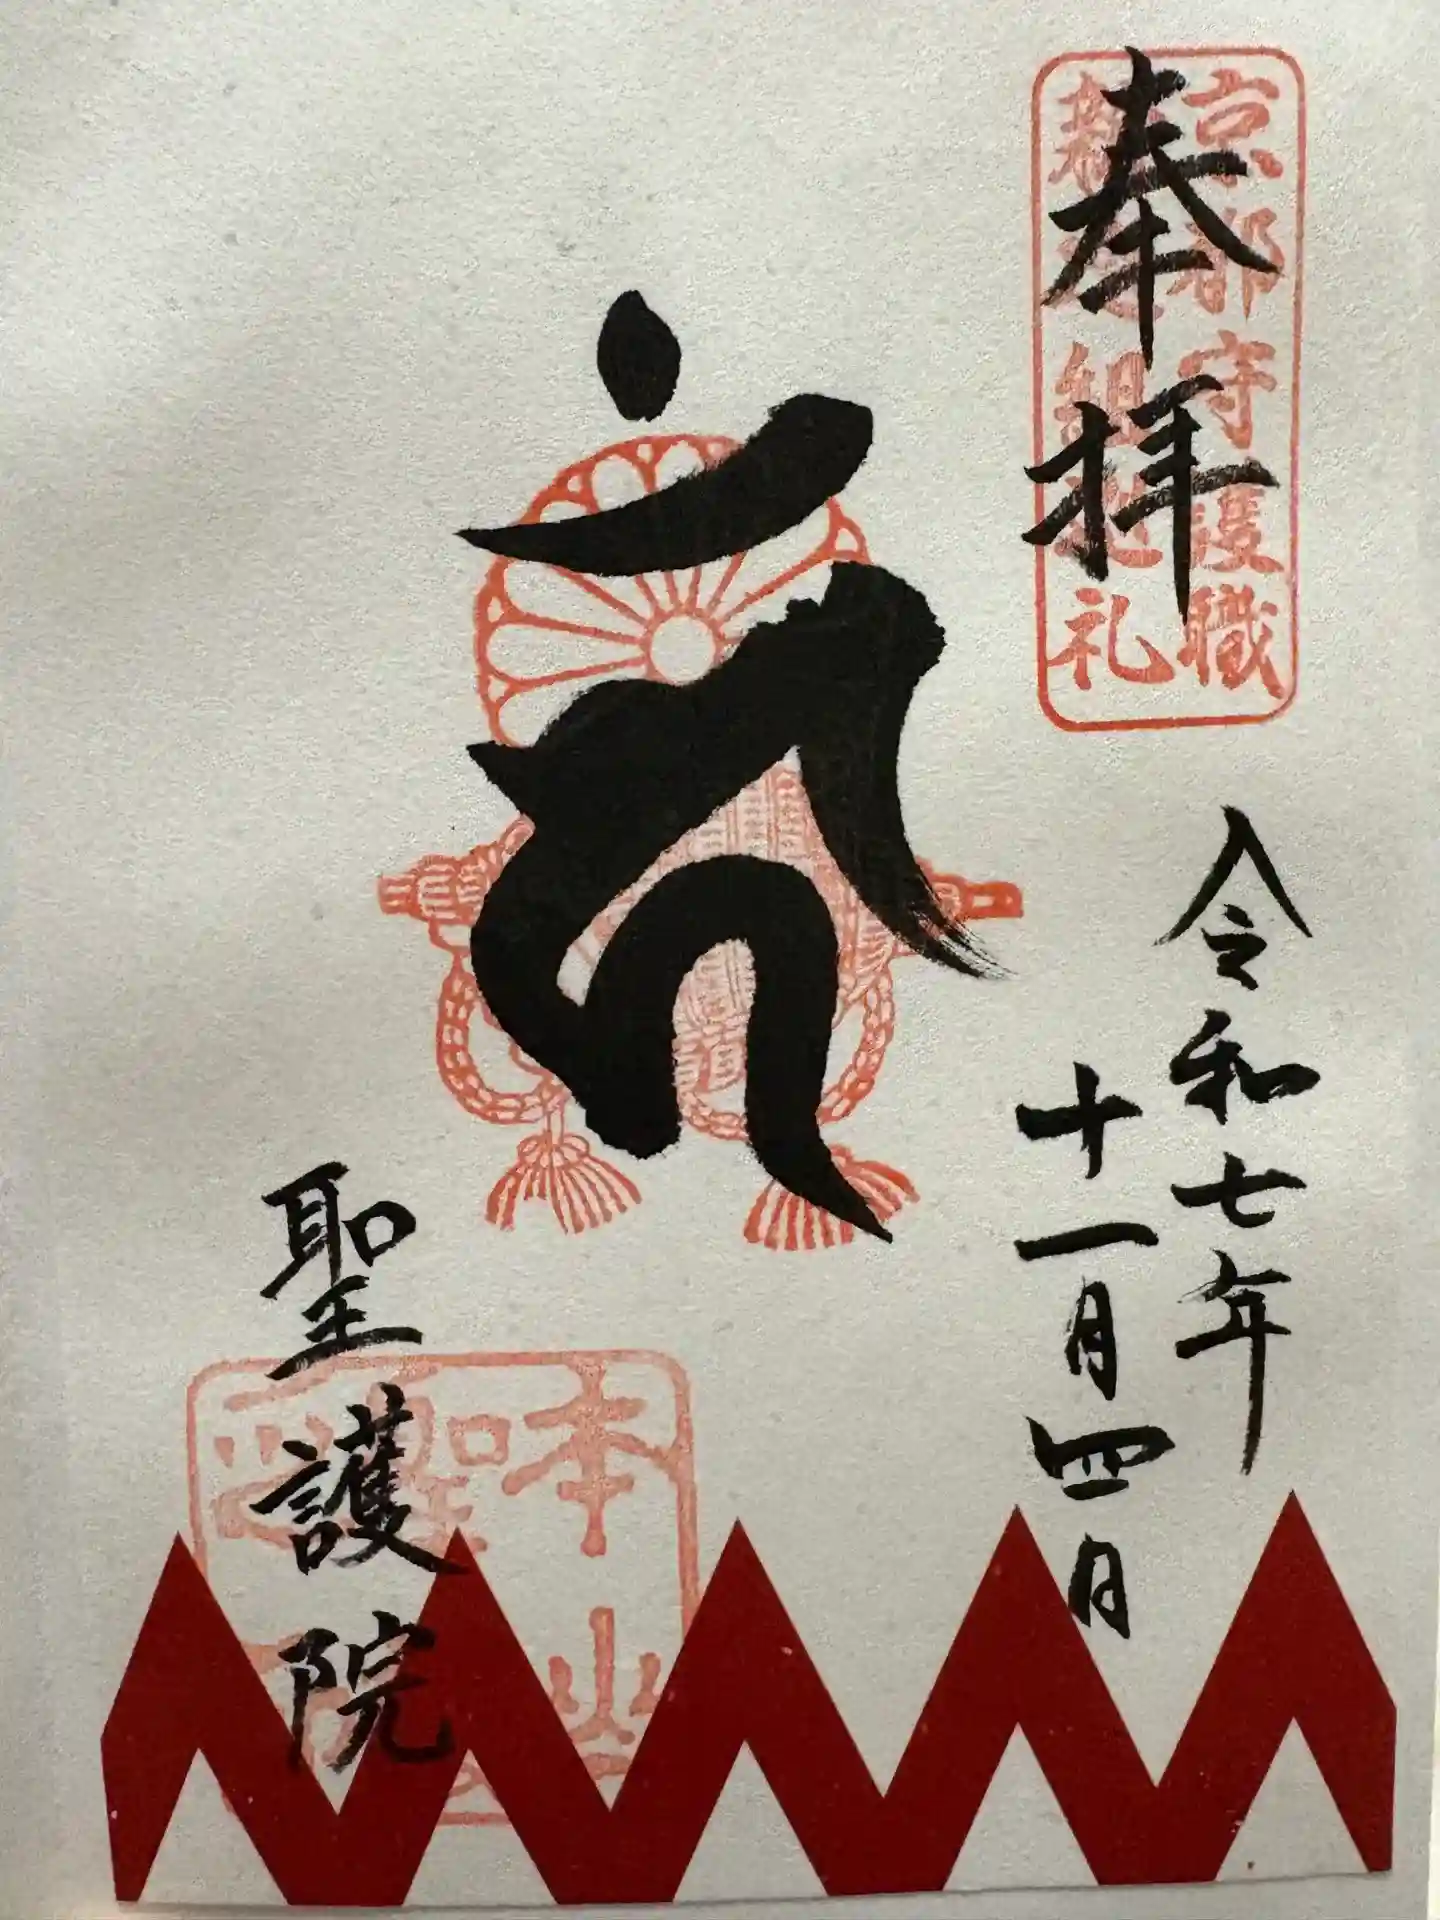 京都守護職
新選組巡礼
奉拝
令和七年
十一月四日
聖護院
本山